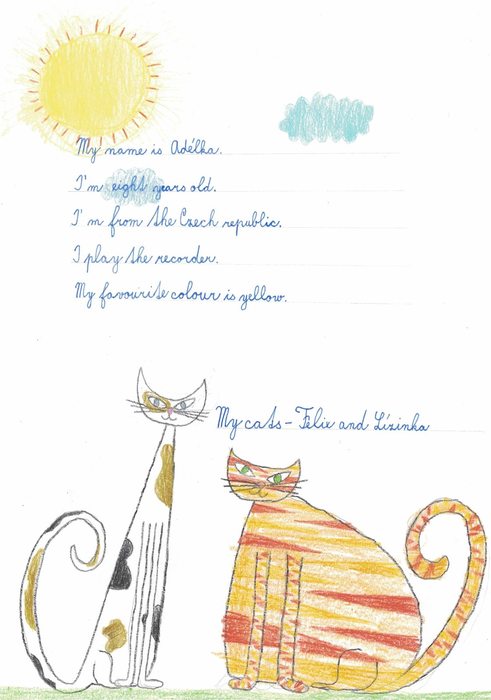 My name is Adélka.
I'm eight years old.
I'm from the Czech republic.
I play the recorder.
My favourite colour is yellow.
My cats - Félix and Lízinka